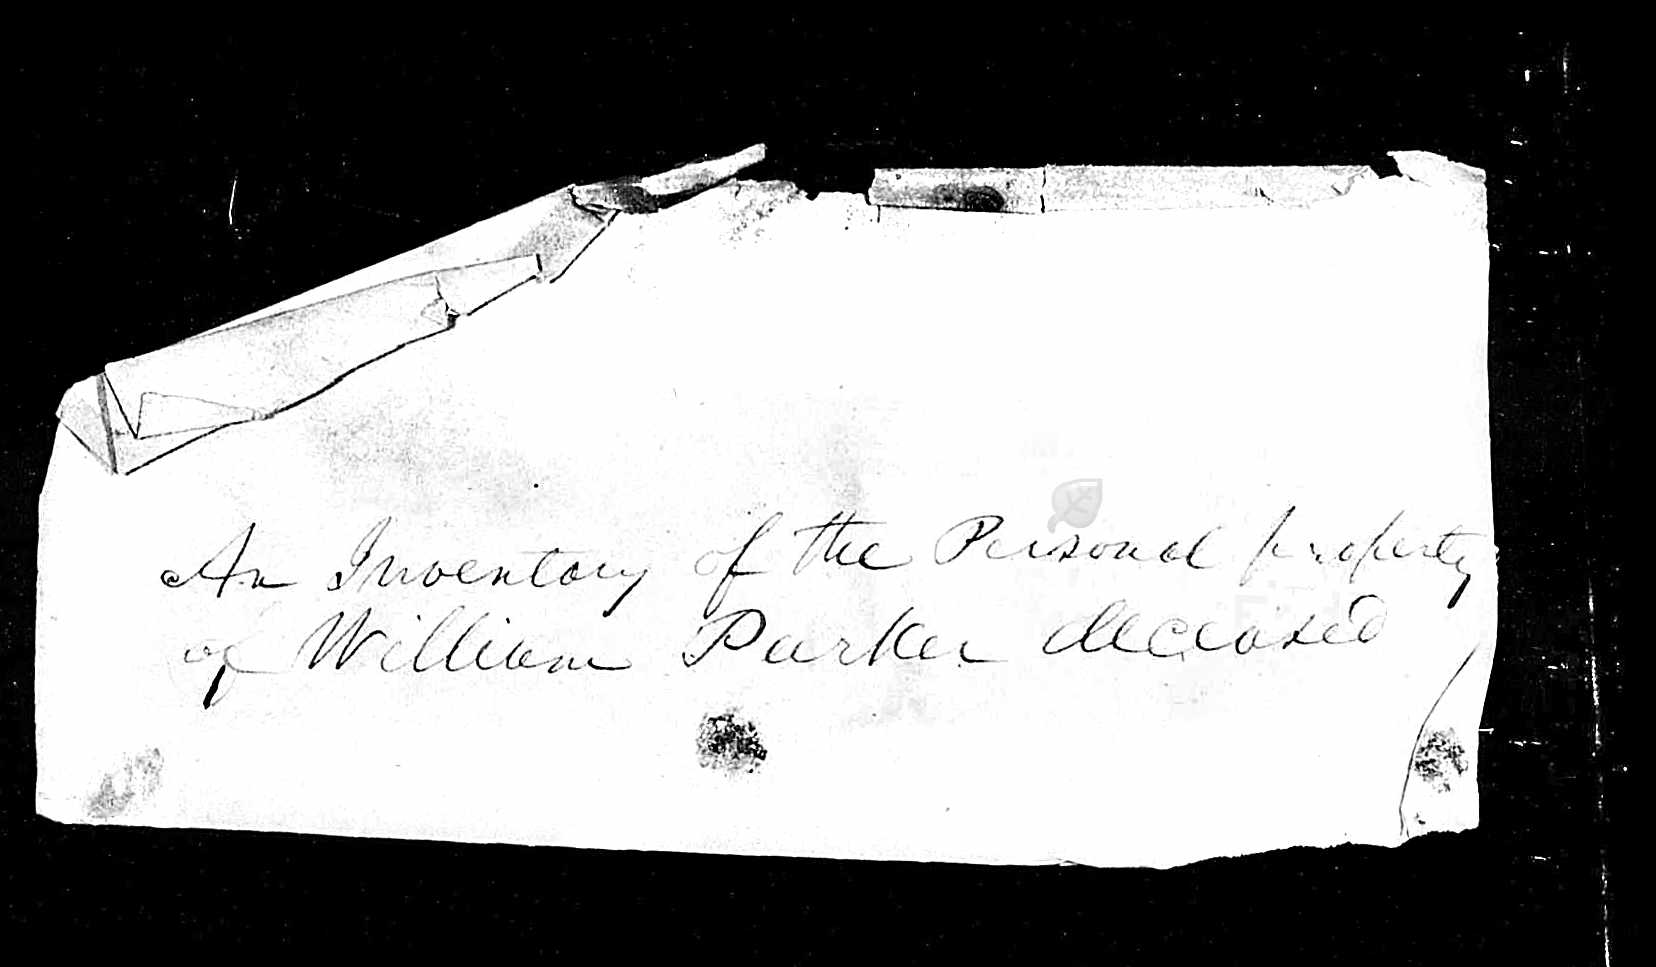 An Inventory of the Personal property
of William Parker deceased